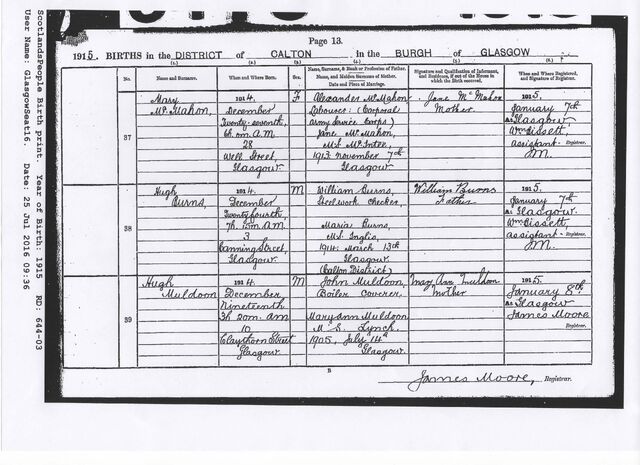 Page 13.
1915. BIRTHS in the DISTRICT of CALTON in the BURGH of GLASGOW
(1.) (2.) (3.) (4.) (5.) (6.)
No. Name and Surname. When and Where Born. Sex. Name, Surname, & Rank or Profession of Father. Name, and Maiden Surname of Mother. Date and Place of Marriage. Signature and Qualification of Informant, and Residence, if out of the House in which the Birth occurred. When and Where Registered, and Signature of Registrar.
37
Mary
McMahon
1914.
December
Twenty-seventh,
A.M.
28
Well Street,
Glasgow.
F
Alexander McMahon
Labourer: (Corporal
Army Service Corps)
Jane McMahon,
M.S. McIntee,
1913. November 7th
Glasgow.
Jane McMahon
Mother.
1915.
January 7th
At Glasgow
Wm Bissett,
assistant Registrar.
J.M.
38
Hugh
Burns,
1914.
December
Twenty fourth,
7h. 15m. A.M.
3
Canning Street,
Glasgow.
M
William Burns,
Steelwork Checker,
Maria Burns,
M.S. Inglis,
1914. March 13th
Glasgow.
(Calton District)
William Burns
Father
1915.
January 7th
At Glasgow.
Wm Bissett,
assistant Registrar.
J.M.
39
Hugh
Muldoon
1914.
December
Nineteenth
3h 20m. am
10
Claythorn Street
Glasgow.
M
John Muldoon,
Boiler Coverer.
Mary Ann Muldoon
M.S. Lynch.
1905, July 14th
Glasgow.
Mary Ann Muldoon
Mother
1915.
January 8th
At Glasgow
James Moore
Registrar.
B
James Moore, Registrar.
ScotlandsPeople Birth print. Year of Birth: 1915 RD: 644-03
User Name: GlasgowSeat16. Date: 25 Jul 2016 09:36